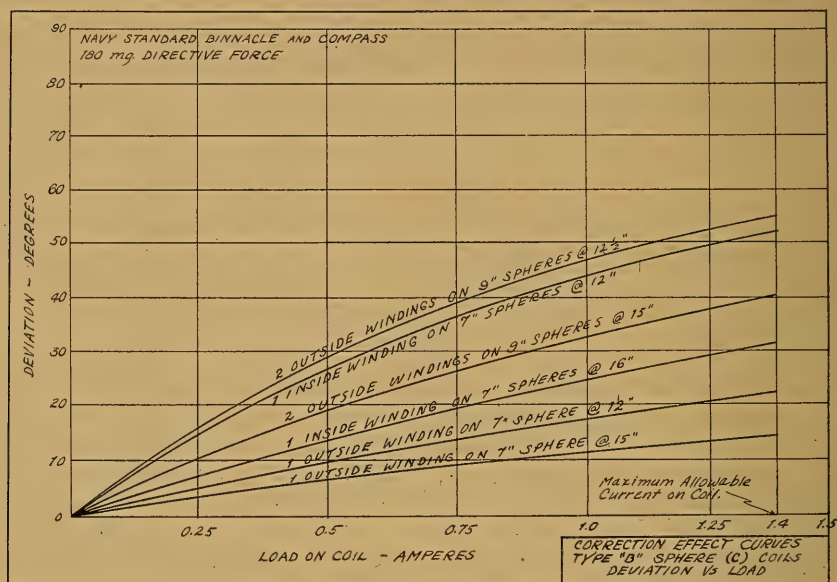 NAVY STANDARD BINNACLE AND COMPASS
180 mg. DIRECTIVE FORCE
90
80
70
60
50
40
30
20
10
0
DEVIATION - DEGREES
2 OUTSIDE WINDINGS ON 9" SPHERES @ 12 1/2"
1 INSIDE WINDING ON 7" SPHERES @ 12"
2 OUTSIDE WINDINGS ON 9" SPHERES @ 15"
1 INSIDE WINDING ON 7" SPHERES @ 16"
1 OUTSIDE WINDING ON 7" SPHERE @ 12"
1 OUTSIDE WINDING ON 7" SPHERE @ 15"
Maximum Allowable
Current on Coil.
0.25 0.5 0.75 1.0 1.25 1.4 1.5
LOAD ON COIL - AMPERES
CORRECTION EFFECT CURVES
TYPE "B" SPHERE (C) COILS
DEVIATION VS LOAD